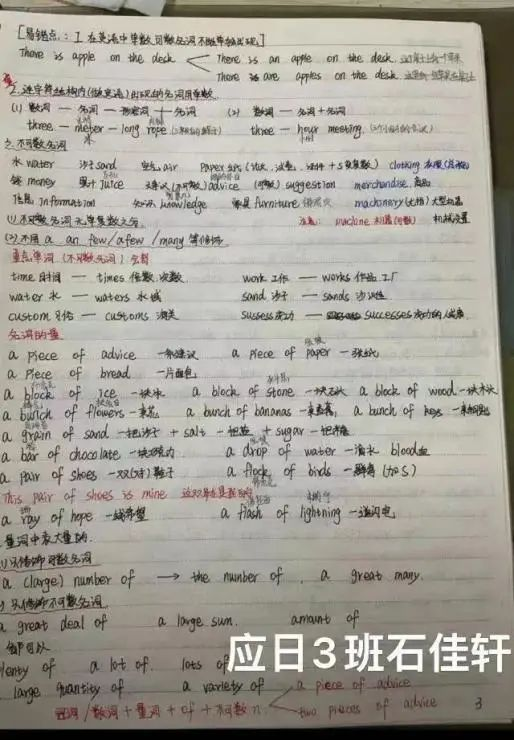 [易错点：1 在英语中单数可数名词不能单独出现]
There is apple on the deck < There is an apple on the deck.
There is are apples on the deck
2. 连字符结构内 的名词用单数
(1) 数词 — 名词 — 形容词 + 名词 (2) 数词 — 名词 + 名词
three — meter — long rope three — hour meeting.
2. 不可数名词
水 water 沙子 sand 空气 air paper 衣服 clothing
钱 money 果汁 Juice 建议 (不可数) advice (可数) suggestion merchandise 商品
信息 Information 知识 knowledge 家具 furniture machinery 大型机器
(1) 不可数名词无单复数之分 注意: machine 机器(可数) 机械装置
(2) 不用 a an few/a few /many 等修饰
重点单词 (不可数名词)
time 时间 — times 倍数.次数 work 工作 — works 作品.工厂
water 水 — waters 水域 sand 沙子 — sands 沙滩
custom 习俗 — customs 海关 sussess 成功 — successes 成功的人或事
名词的量
a piece of advice 一条建议 a piece of paper 一张纸
a piece of bread 一片面包
a block of ice 一块冰 a block of stone 一块石头 a block of wood 一块木头
a bunch of flowers 一束花 a bunch of bananas 一串香蕉 a bunch of keys 一串钥匙
a grain of sand 一把沙子 + salt 一把盐 + sugar 一把糖
a bar of chocolate 一块巧克力 a drop of water 一滴水 blood 血
a pair of shoes 一双(对)鞋子 a flock of birds 一群鸟 (加s)
This pair of shoes is mine 这双鞋是我的
a ray of hope 一线希望 a flash of lightning 一道闪电
量词中表大量的.
只修饰可数名词
a (large) number of → the number of . a great many.
只修饰不可数名词
a great deal of a large sum. amount of
都可以
plenty of a lot of. lots of
large quantity of a variety of
冠词/数词+量词+of+不可数n. < a piece of advice
two pieces of advice
3
应日3班石佳轩